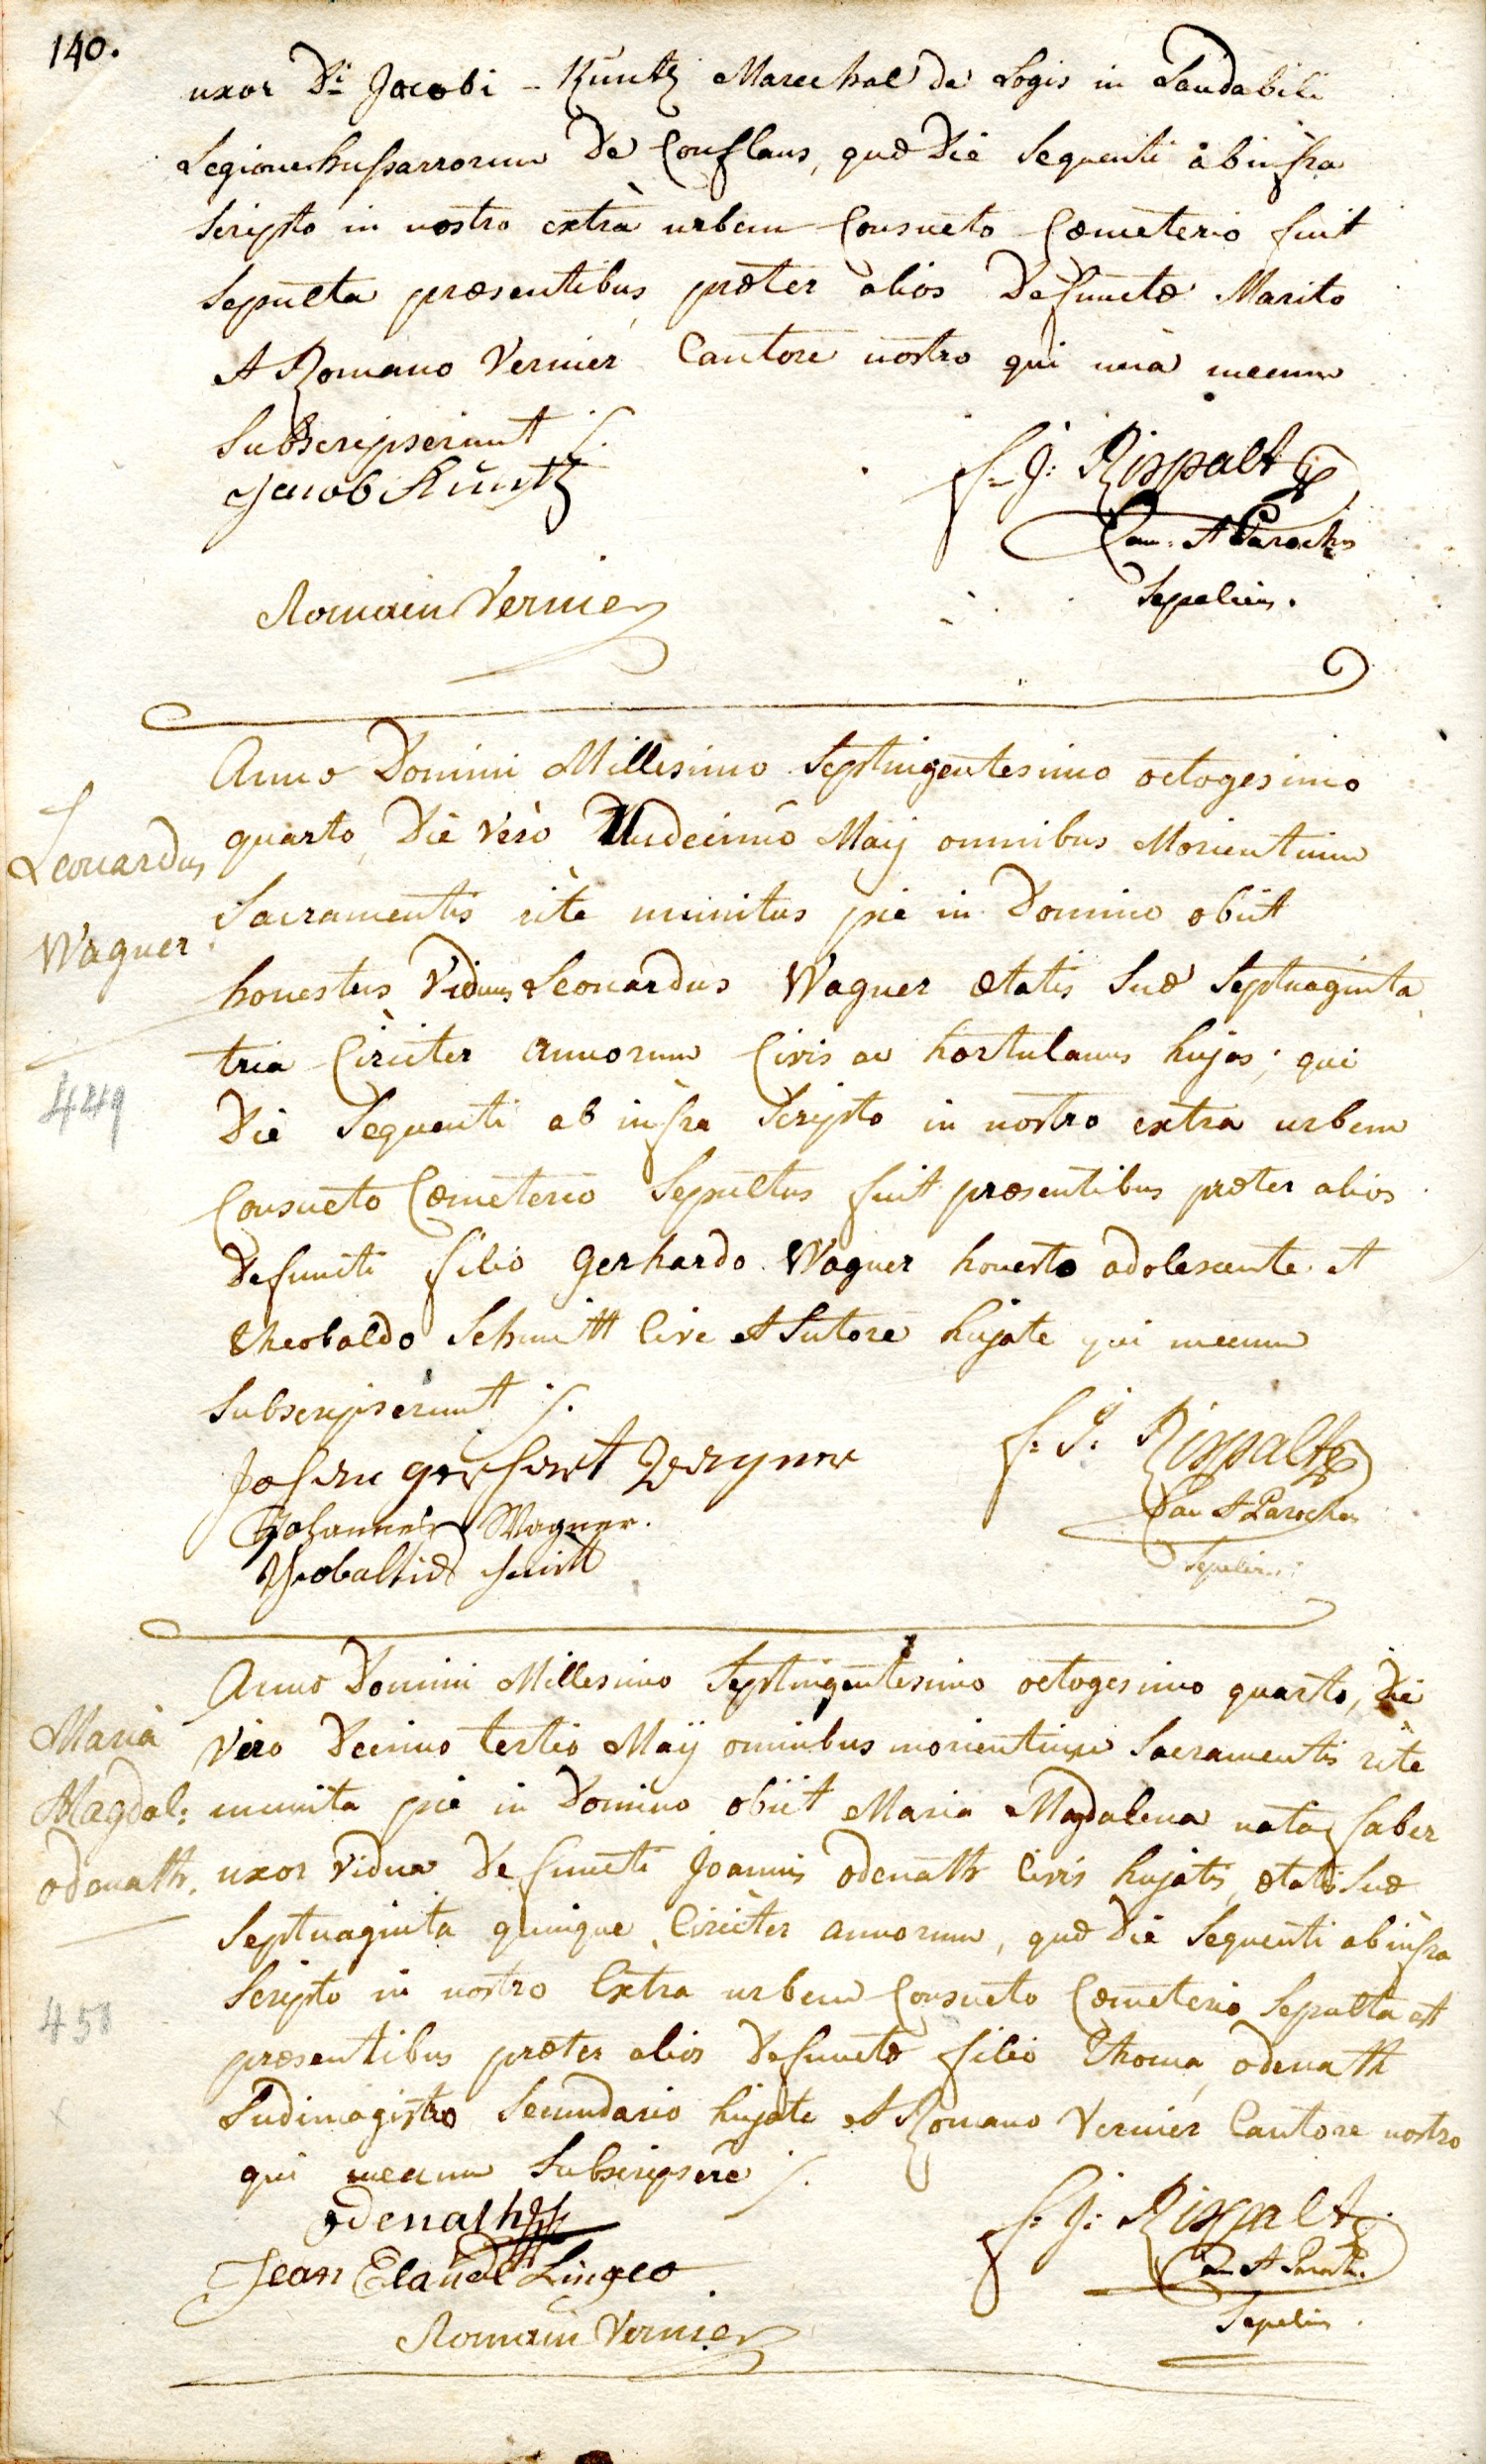 140.
uxor Di Jacobi - Kuntz Marechal de Logis in Laudabili
Legione hussarrorum De Conflans, quæ Die Sequenti ab infra
Scripto in nostro extrà urbem Consueto Cœmeterio fuit
Sepulta præsentibus præter alios Defunctæ Marito
et Romano Vernier Cantore nostro qui unà mecum
Subscripserunt ./.
Jacob Kuntz
F. J: Rispalt
Can. et Parochus
Sepeliens.
Romain Vernier
Anno Domini Millesimo Septingentesimo octogesimo
quarto, Die Verò Undecimo Maij omnibus Morientium
Leonardus
Sacramentis ritè munitus piè in Domino obiit
Wagner
honestus Viduus Leonardus Wagner ætatis Suæ Septuaginta
tria Circiter annorum Civis ac hortulanus hujas; qui
449
Die Sequenti ab infra Scripto in nostro extra urbem
Consueto Cœmeterio Sepultus fuit præsentibus præter alios
Defuncti filio Gerhardo Wagner honesto adolescente et
Theobaldo Schmitt Cive et Sutore hujate qui mecum
Subscripserunt ./.
F: J: Rispalt
Can et Parochus
Sepeliens
Johannes Wagner.
Anno Domini Millesimo Septingentesimo octogesimo quarto, Die
Maria
Vero Decimo tertio Maij omnibus morientium Sacramentis ritè
Magdal:
munita piè in Domino obiit Maria Magdalena nata Faber
odenath.
uxor Vidua Defuncti Joannis odenath Civis hujatis, ætatis Suæ
Septuaginta quinque Circiter annorum, quæ Die Sequenti ab infra
Scripto in nostro Extra urbem Consueto Cœmeterio Sepulta est
præsentibus præter alios Defunctæ filio Thoma odenath
Ludimagistro Secundario hujate et Romano Vernier Cantore nostro
qui mecum Subscripsere ./.
odenath
F: J: Rispalt
Jean
Sepeliens
Romain Vernier